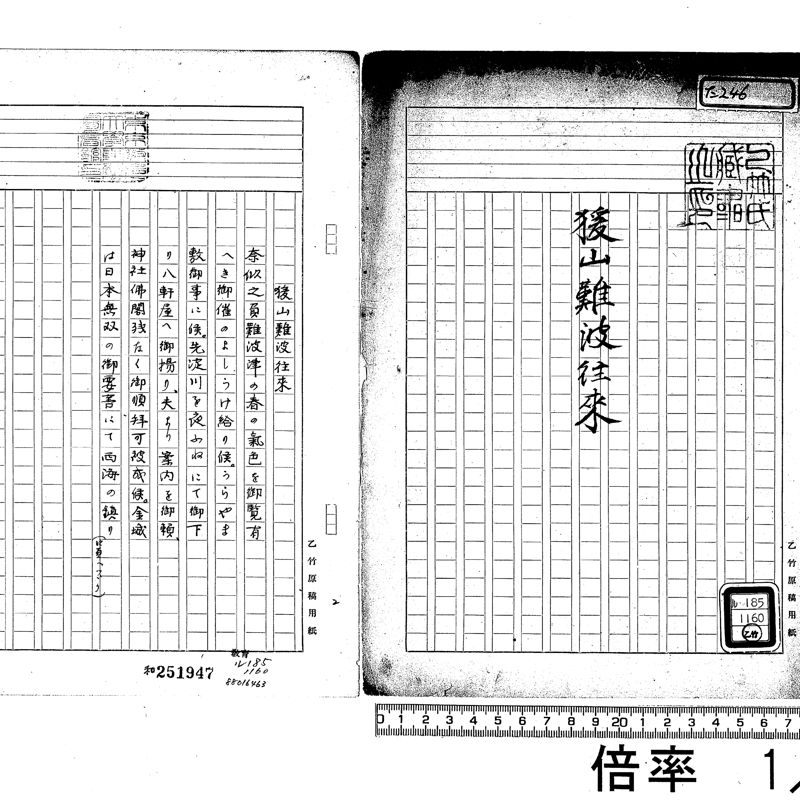 ヲ二246
乙竹氏
藏書
之印
猨山難波往來
ル-185
1160
乙竹
乙竹原稿用紙
猨山難波往來
奈似之員難波津の春の氣色を御覧有
へき御催のよしうけ給り候。うらやま
敷御事に候。先淀川を夜ふねにて御下
り八軒屋へ御揚り、夫より案内を御頼、
神社佛閣残なく御順拜可被成候。金城
は日本無双の御要害にて西海の鎮り
乙竹原稿用紙
2
和251947
教育
ル185
1160
88016463
0 1 2 3 4 5 6 7 8 9 20 1 2 3 4 5 6 7
倍率 1/